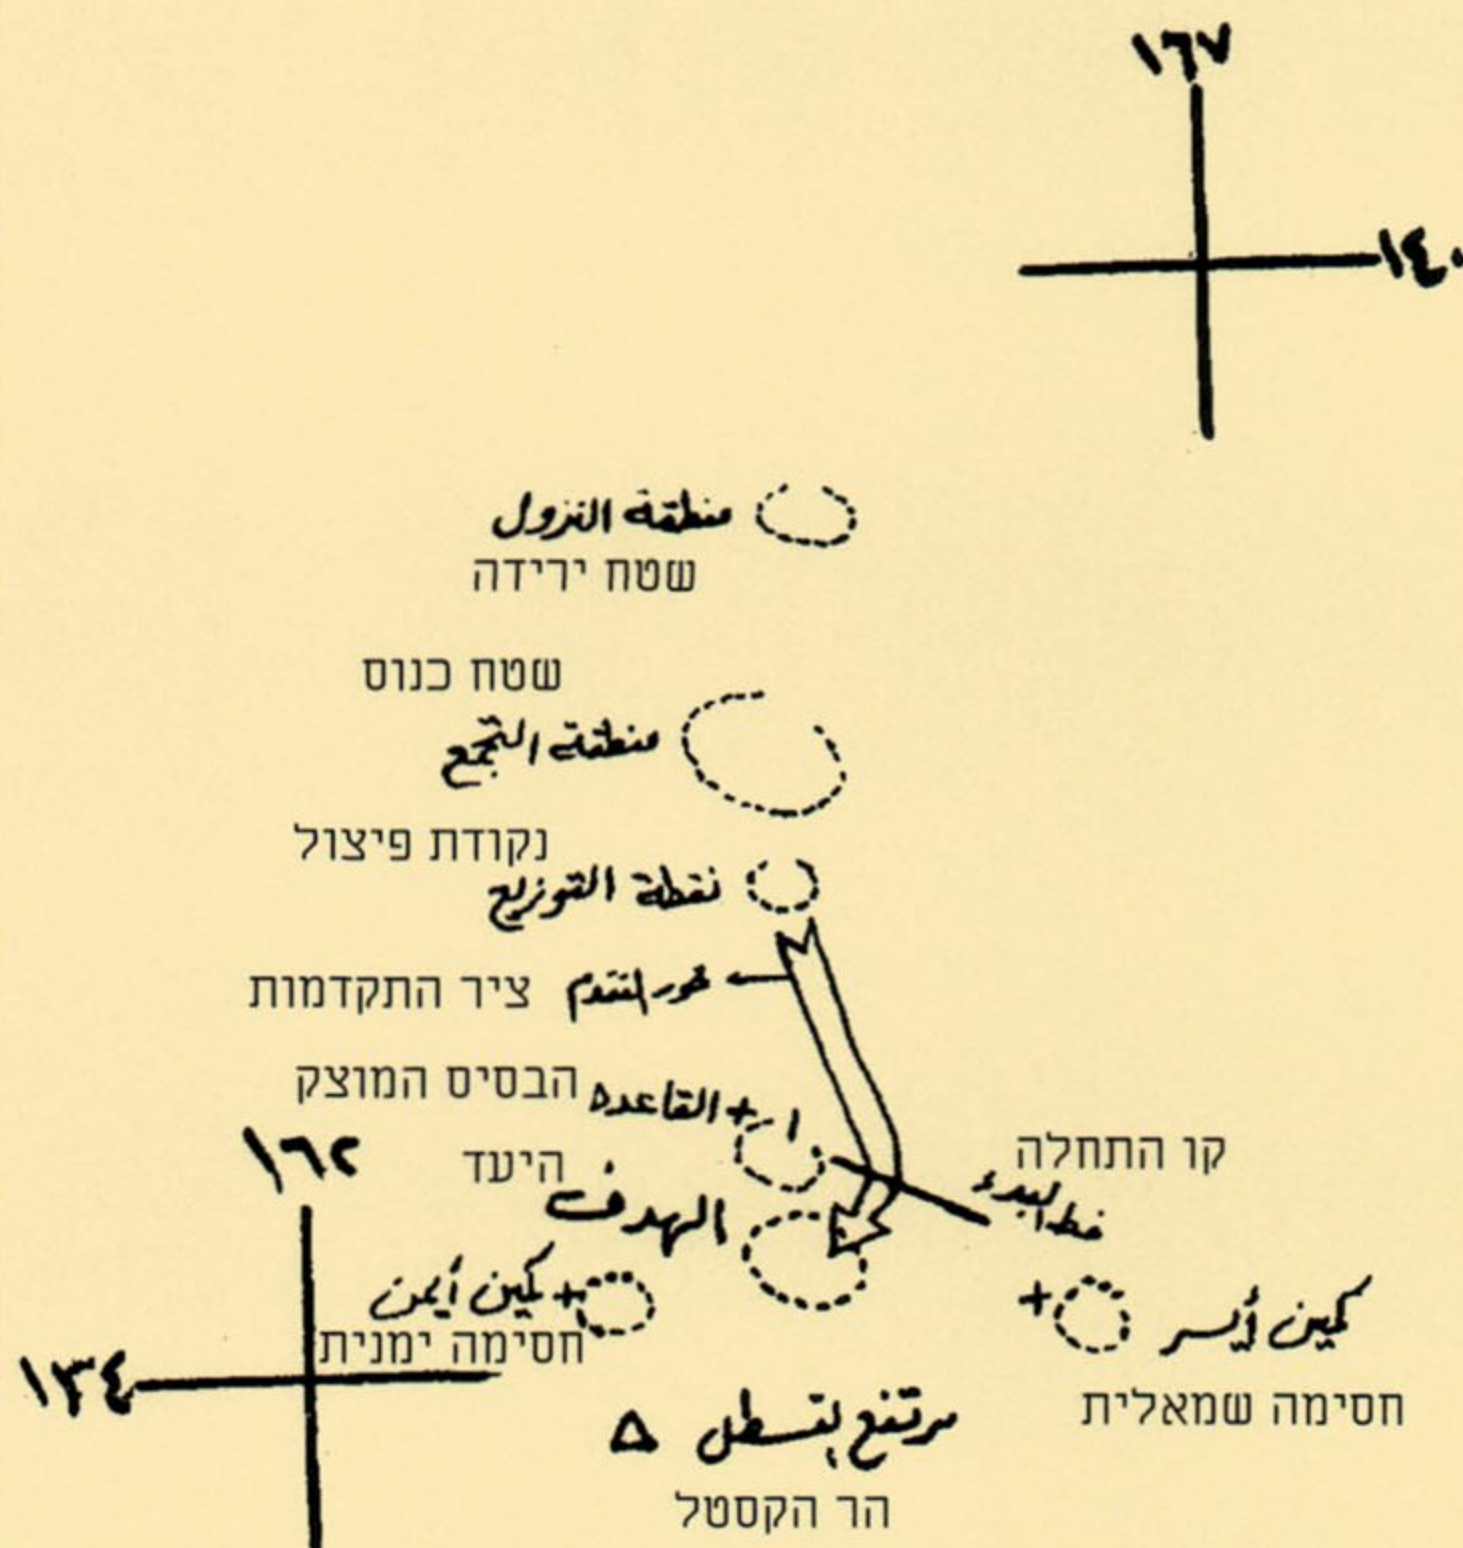 ١٦٧
١٤٠
منطقة النزول
שטח ירידה
שטח כנוס
منطقة التجمع
נקודת פיצול
نقطة التوزيع
ציר התקדמות
محور التقدم
הבסיס המוצק
القاعدة
١٦٢
היעד
الهدف
קו התחלה
خط البدء
كمين أيمن
חסימה ימנית
كمين أيسر
חסימה שמאלית
١٣٤
مرتفع القسطل
הר הקסטל